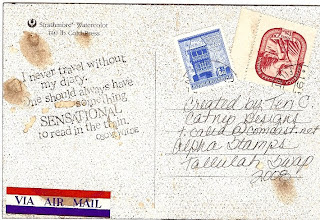 Strathmore® Watercolor
140 lb Cold Press
I never travel without
my diary.
One should always have
something
SENSATIONAL
to read in the train.
OSCAR WILDE
Created by Teri C.
Catnip Designs
Alpha Stamps
Tallulah Swap
2008
VIA AIR MAIL